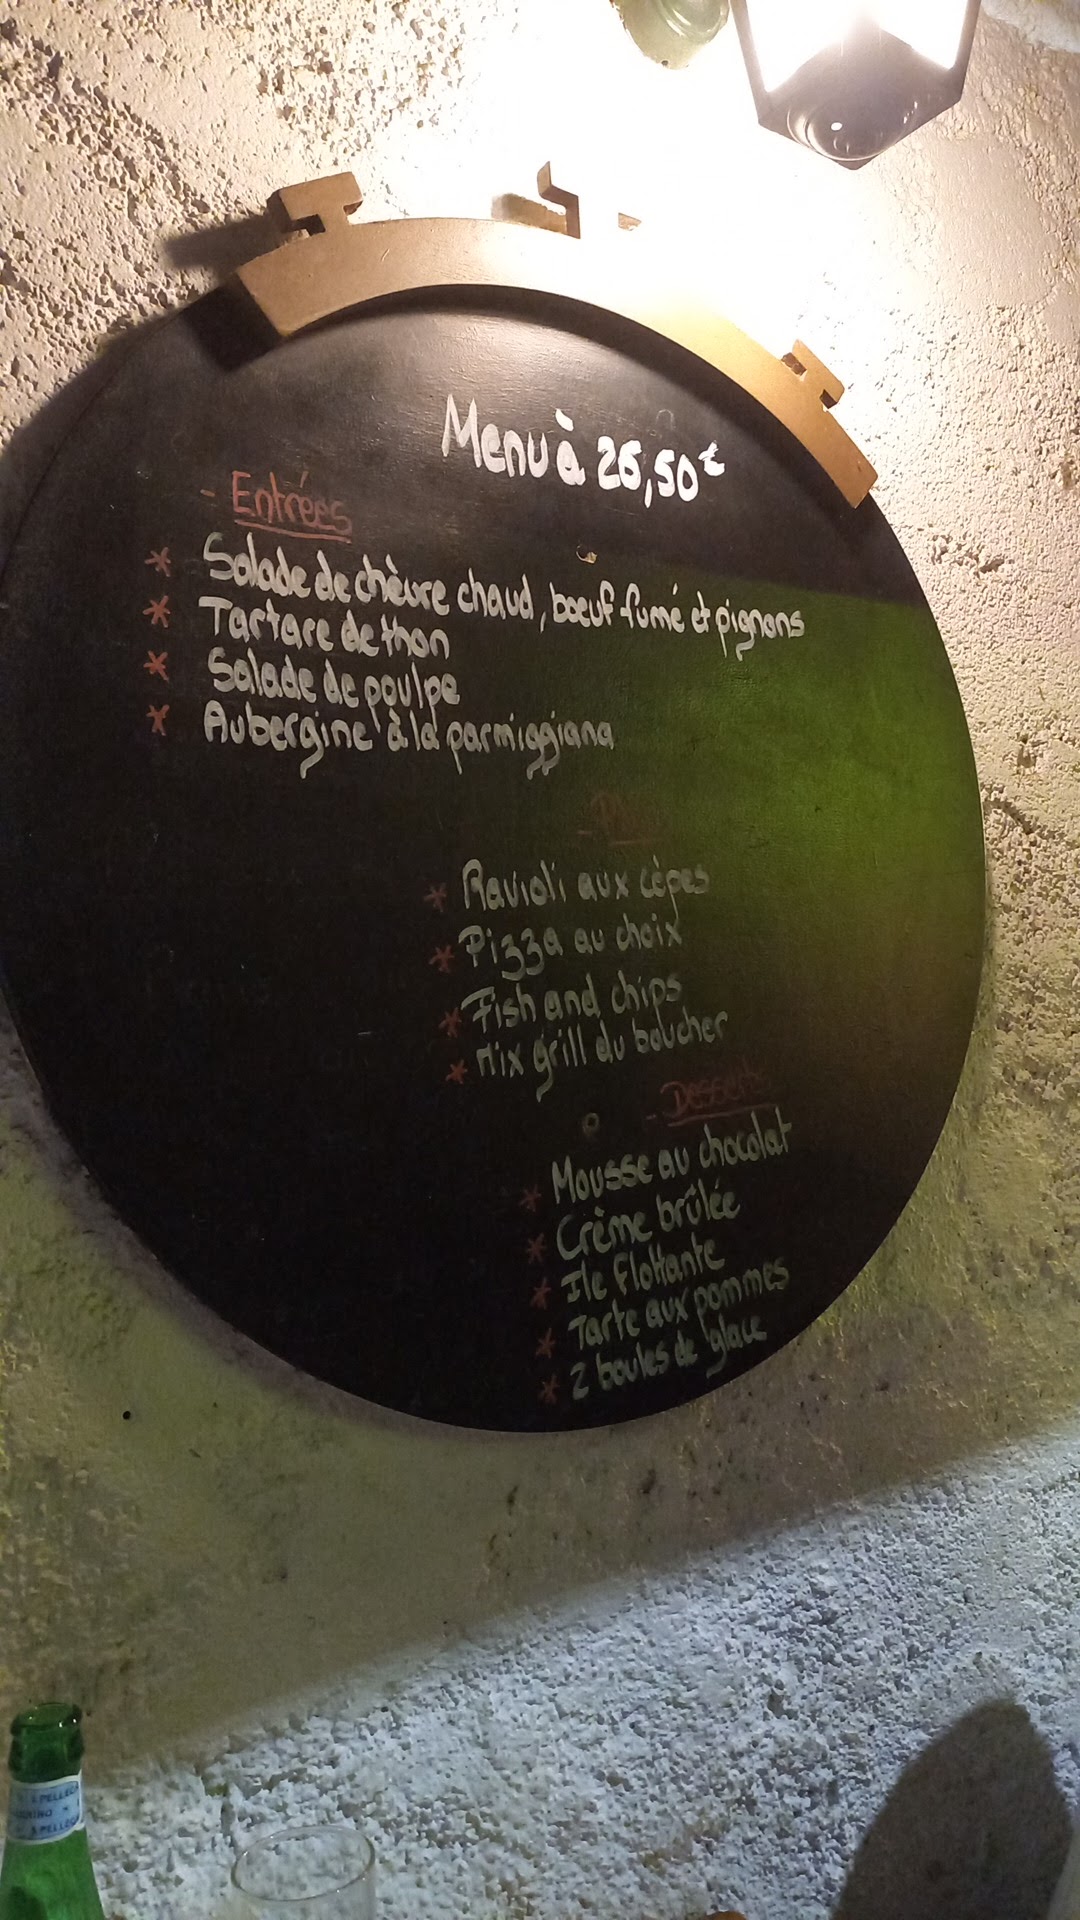 Menu à 26,50€
- Entrées
* Salade de chèvre chaud, bœuf fumé et pignons
* Tartare de thon
* Salade de poulpe
* Aubergine à la parmiggiana
- Plats
* Ravioli aux cèpes
* Pizza au choix
* Fish and chips
* Mix grill du boucher
- Desserts
* Mousse au chocolat
* Crème brûlée
* Ile flottante
* Tarte aux pommes
* 2 boules de glace
S.PELLEG
S.PELLEG